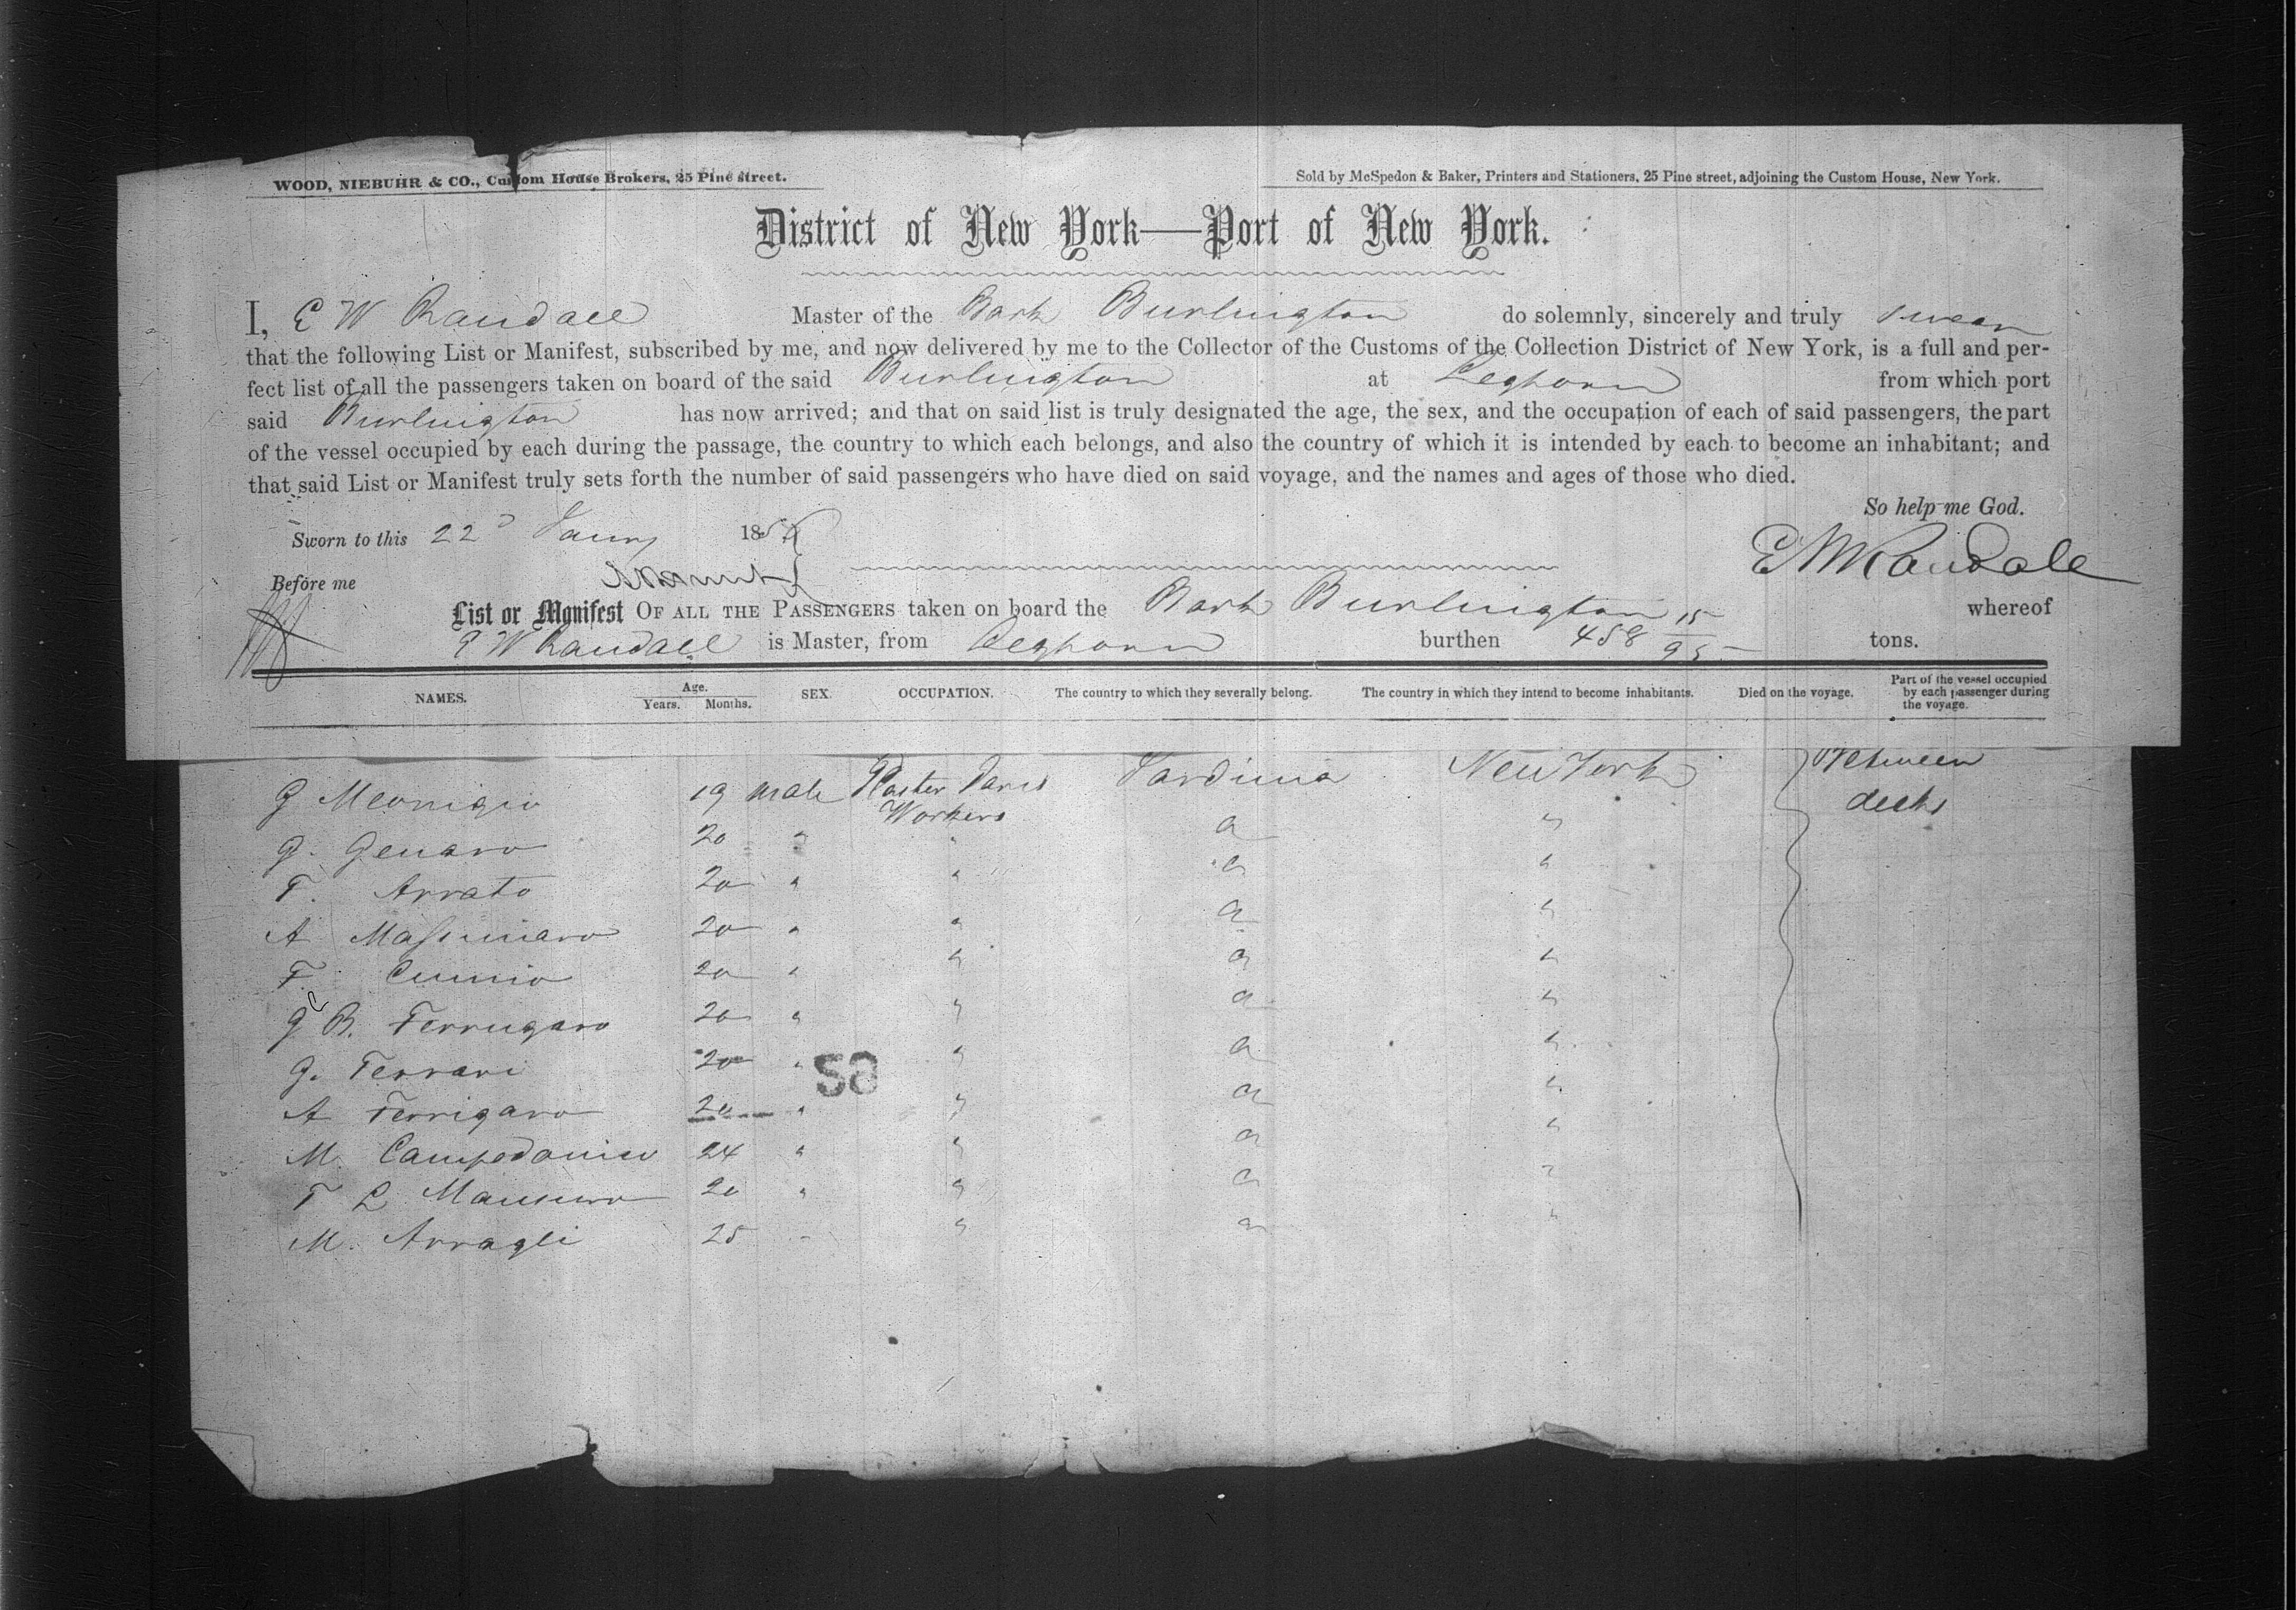 WOOD, NIEBUHR & CO., Custom House Brokers, 25 Pine street.
Sold by McSpedon & Baker, Printers and Stationers, 25 Pine street, adjoining the Custom House, New York.
District of New York—Port of New York.
I, E W Randall Master of the Bark Burlington do solemnly, sincerely and truly swear
that the following List or Manifest, subscribed by me, and now delivered by me to the Collector of the Customs of the Collection District of New York, is a full and per-
fect list of all the passengers taken on board of the said Burlington at Leghorn from which port
said Burlington has now arrived; and that on said list is truly designated the age, the sex, and the occupation of each of said passengers, the part
of the vessel occupied by each during the passage, the country to which each belongs, and also the country of which it is intended by each to become an inhabitant; and
that said List or Manifest truly sets forth the number of said passengers who have died on said voyage, and the names and ages of those who died.
So help me God.
Sworn to this 22d Jany 185
E W Randall
Before me
List or Manifest OF ALL THE PASSENGERS taken on board the Bark Burlington whereof
E W Randall is Master, from Leghorn burthen 458 15/95 tons.
NAMES. Age. Years. Months. SEX. OCCUPATION. The country to which they severally belong. The country in which they intend to become inhabitants. Died on the voyage. Part of the vessel occupied by each passenger during the voyage.
G 19 male Plaster Paris Workers Sardinia New York Between decks
G. Genaro 20 " " " "
F. Arrato 20 " " " "
A Massimaro 20 " " " "
F. Cunnio 20 " " " "
G B. Ferrugaro 20 " " " "
G. Ferrari 20 " " " "
A Ferrigaro 20 " " " "
M. Campodonico 24 " " " "
F L 20 " " " "
M. Arragli 25 " " " "
59